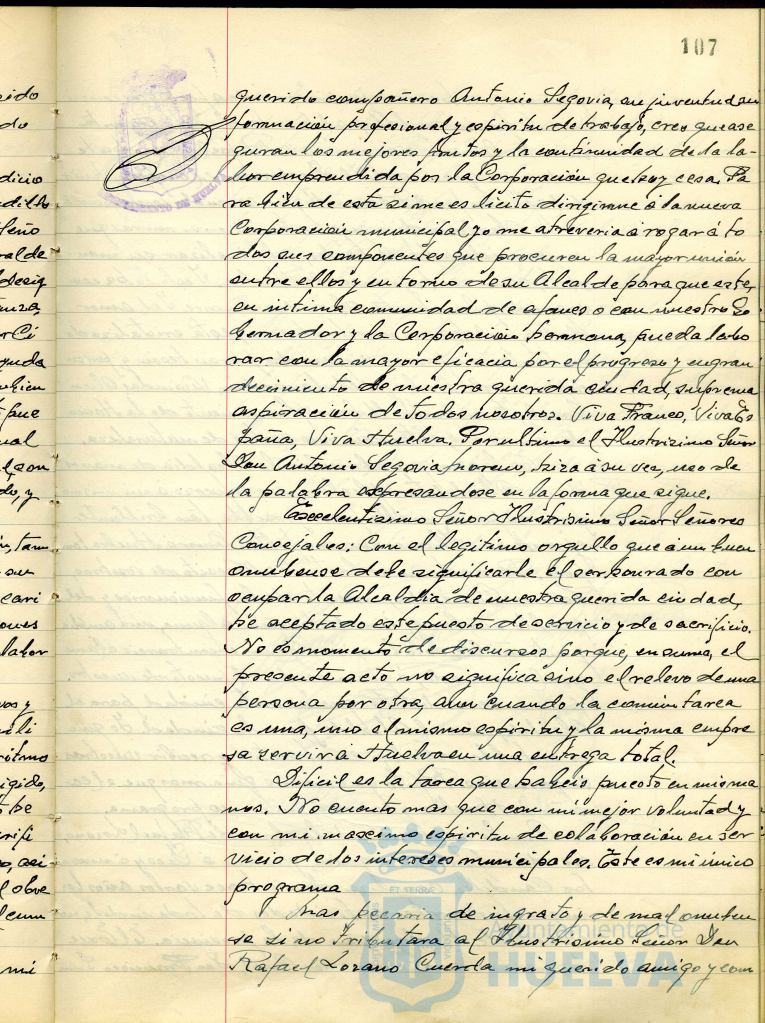 107
querido compañero Antonio Segovia, su juventud su
formación profesional y espiritu de trabajo, creo que ase
guran los mejores frutos y la continuidad de la la-
bor emprendida por la Corporación que hoy cesa. Pa
ra bien de esta si me es licito dirigirme á la nueva
Corporación municipal yo me atreveria á rogar á to
dos sus componentes que procuren la mayor unión
entre ellos y en torno de su Alcalde para que este,
en intima comunidad de afanes o con nuestro Go
bernador y la Corporación hermana, pueda labo
rar con la mayor eficacia por el progreso y engran
decimiento de nuestra querida ciudad, suprema
aspiración de todos nosotros. Viva Franco, Viva Es
paña, Viva Huelva. Por ultimo el Ilustrisimo Señor
Don Antonio Segovia Moreno, hizo á su vez, uso de
la palabra expresandose en la forma que sigue.
Excelentisimo Señor Ilustrisimo Señor Señores
Concejales: Con el legitimo orgullo que á un buen
onubense debe significarle el ser honrado con
ocupar la Alcaldia de nuestra querida ciudad,
he aceptado este puesto de servicio y de sacrificio.
No es momento de discursos porque, en suma, el
presente acto no significa sino el relevo de una
persona por otra, aun cuando la comun tarea
es una, uno el mismo espiritu y la misma empre
sa servir á Huelva en una entrega total.
Dificil es la tarea que habeis puesto en mis ma
nos. No cuento mas que con mi mejor voluntad y
con mi maximo espiritu de colaboración en ser
vicio de los intereses municipales. Este es mi unico
programa
Mas pecaria de ingrato y de mal onuben
se si no tributara al Ilustrisimo Señor Don
Rafael Lozano Cuerda mi querido amigo y com
ET TERRE
Ayuntamiento de
HUELVA